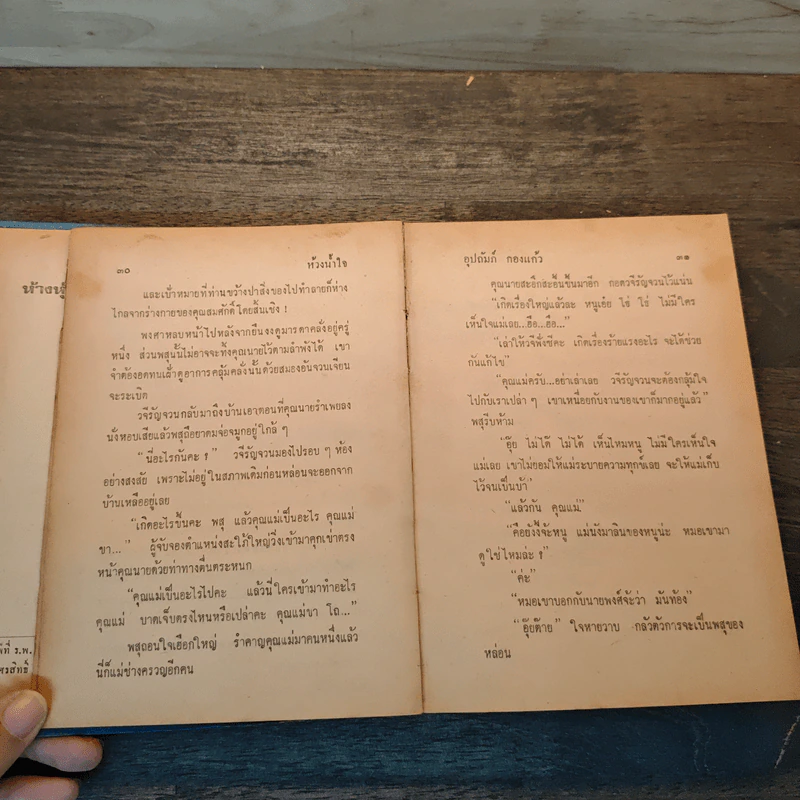 ห้างหุ้
ที่ ร.พ.
ศรสิทธิ์
๓๐ ห้วงน้ำใจ
และเป้าหมายที่ท่านขว้างปาสิ่งของไปทำลายก็ห่าง
ไกลจากร่างกายของคุณสมศักดิ์โดยสิ้นเชิง !
พงศาหลบหน้าไปหลังจากยืนงงดูมารดาคลั่งอยู่ครู่
หนึ่ง ส่วนพสุนั้นไม่อาจจะทิ้งคุณนายไว้ตามลำพังได้ เขา
จำต้องอดทนเฝ้าดูอาการคลุ้มคลั่งนั้นด้วยสมองอันจวนเจียน
จะระเบิด
วจีรัญจวนกลับมาถึงบ้านเอาตอนที่คุณนายรำเพยลง
นั่งหอบเสียแล้วพสุถือยาดมจ่อจมูกอยู่ใกล้ ๆ
“นี่อะไรกันคะ ?” วจีรัญจวนมองไปรอบ ๆ ห้อง
อย่างสงสัย เพราะไม่อยู่ในสภาพเดิมก่อนหล่อนจะออกจาก
บ้านเหลืออยู่เลย
“เกิดอะไรขึ้นคะ พสุ แล้วคุณแม่เป็นอะไร คุณแม่
ขา...” ผู้จับจองตำแหน่งสะใภ้ใหญ่วิ่งเข้ามาคุกเข่าตรง
หน้าคุณนายด้วยท่าทางตื่นตระหนก
“คุณแม่เป็นอะไรไปคะ แล้วนี่ใครเข้ามาทำอะไร
คุณแม่ บาดเจ็บตรงไหนหรือเปล่าคะ คุณแม่ขา โถ...”
พสุถอนใจเฮือกใหญ่ รำคาญคุณแม่มาคนหนึ่งแล้ว
นี่ก็แม่ช่างครวญอีกคน
อุปถัมภ์ กองแก้ว ๓๑
คุณนายสะอึกสะอื้นขึ้นมาอีก กอดวจีรัญจวนไว้แน่น
“เกิดเรื่องใหญ่แล้วละ หนูเอ๋ย โฮ่ โฮ่ ไม่มีใคร
เห็นใจแม่เลย...ฮือ...ฮือ...”
“เล่าให้วจีฟังซีคะ เกิดเรื่องร้ายแรงอะไร จะได้ช่วย
กันแก้ไข”
“คุณแม่ครับ...อย่าเล่าเลย วจีรัญจวนจะต้องกลุ้มใจ
ไปกับเราเปล่า ๆ เขาเหนื่อยกับงานของเขาก็มากอยู่แล้ว”
พสุรีบห้าม
“อุ๊ย ไม่ได้ ไม่ได้ เห็นไหมหนู ไม่มีใครเห็นใจ
แม่เลย เขาไม่ยอมให้แม่ระบายความทุกข์เลย จะให้แม่เก็บ
ไว้จนเป็นบ้า”
“แล้วกัน คุณแม่”
“คือยังงี้จ้ะหนู แม่นังมาลินของหนูน่ะ หมอเขามา
ดูใช่ไหมล่ะ ?”
“ค่ะ”
“หมอเขาบอกกับนายพงศ์จ้ะว่า มันท้อง”
“อุ๊ยต๊าย” ใจหายวาบ กลัวตัวการจะเป็นพสุของ
หล่อน